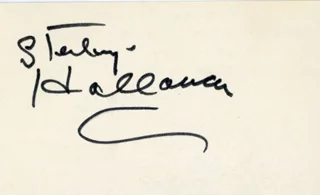 Sterling
Holloway